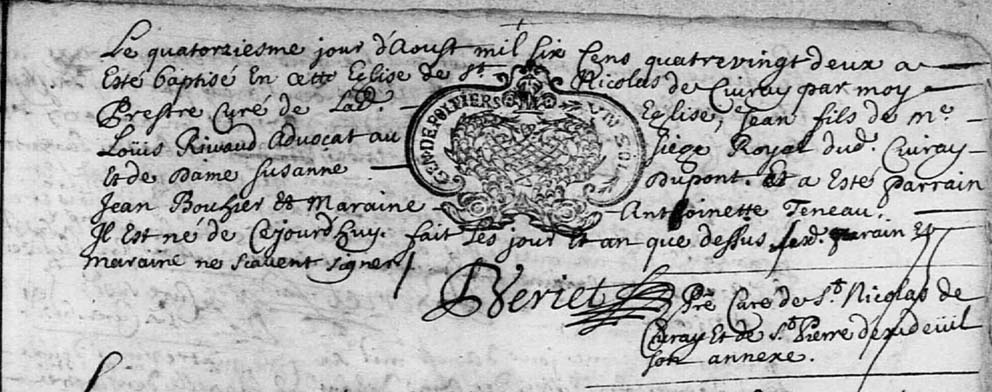 Le quatorziesme jour d'Aoust mil six Cens quatrevingt deux a
Esté baptisé En cette Eglise de St. Nicolas de Civray par moy
Prestre Curé de Lad. Eglise, Jean fils de Me.
Loüis Rivaud Advocat au Siège Royal dud. Civray
Et de Dame Susanne Dupont. Et a Esté parrain
Jean Bouhier & Maraine Anthoinette Feneau.
Il Est né de Cejourd'huy. fait Les jour Et an que dessus. parain Et
maraine ne scavent signer
GEN. DE POITIERS
UN SOL
Veriet Pre Curé de St. Nicolas de
Civray Et de St. Pierre
son annexe.